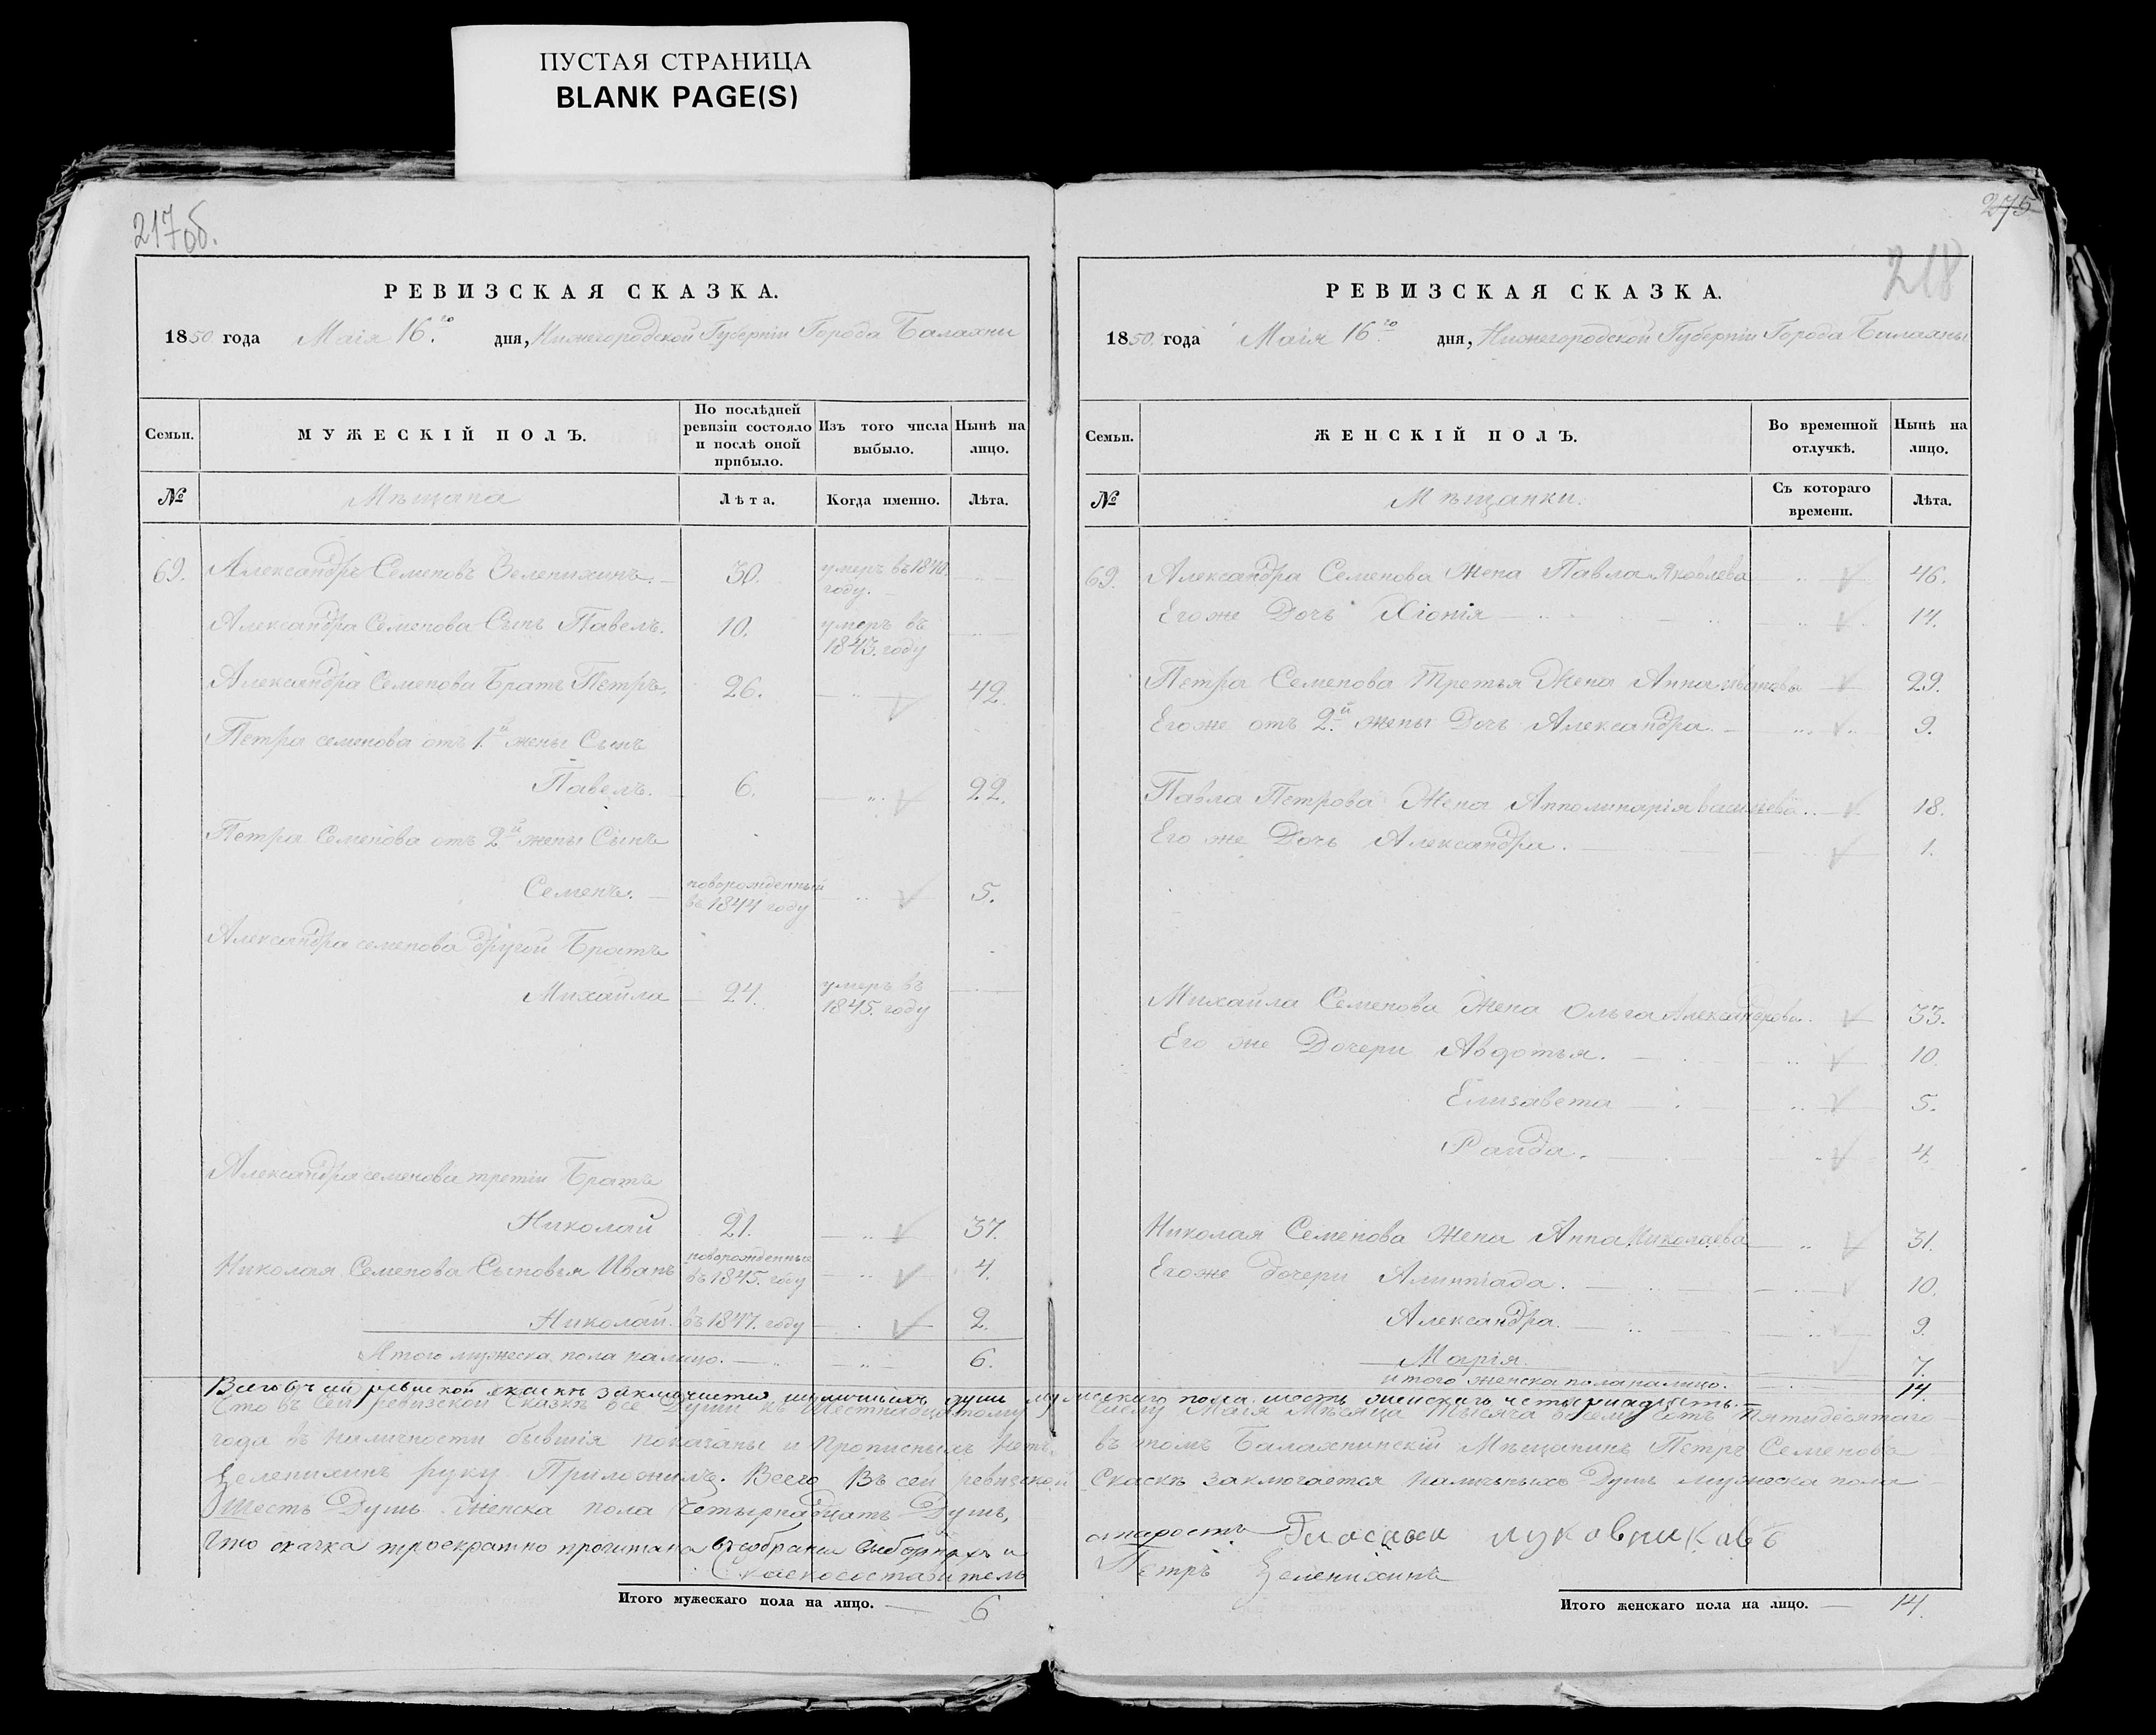 ПУСТАЯ СТРАНИЦА
BLANK PAGE(S)
217об.
РЕВИЗСКАЯ СКАЗКА.
1850 года Маія 16.го дня, Нижегородской Губерніи Города Балахни
Семьи.
МУЖЕСКІЙ ПОЛЪ.
По послѣдней ревизіи состояло и послѣ оной прибыло.
Изъ того числа выбыло.
Нынѣ на лицо.
№
Мѣщана
Лѣта.
Когда именно.
Лѣта.
69. Александръ Семеновъ Зеленихинъ. 30. умеръ въ 1840 году.
Александра Семенова Сынъ Павелъ. 10. умеръ въ 1843. году
Александра Семенова Братъ Петръ. 26. 42.
Петра семенова отъ 1.й жены Сынъ
Павелъ. 6. 22.
Петра Семенова отъ 2й жены Сынъ
Семенъ. новорожденный въ 1844 году 5.
Александра семенова другой Братъ
Михайла 24. умеръ въ 1845. году
Александра семенова третіи Братъ
Николай 21. 37.
Николая Семенова Сыновья Иванъ новорожденные въ 1845. году 4.
Николай. въ 1847. году 2.
Итого мужеска пола налицо. 6.
275
218
РЕВИЗСКАЯ СКАЗКА.
1850. года Маія 16го дня, Нижегородской Губерніи Города Балахны
Семьи.
ЖЕНСКІЙ ПОЛЪ.
Во временной отлучкѣ.
Нынѣ на лицо.
№
Мѣщанки.
Съ котораго времени.
Лѣта.
69. Александра Семенова Жена Павла Яковлева 46.
Его же Дочь Хіонія 14.
Петра Семенова Третья Жена Анна Иванова 29.
Его же отъ 2.й жены Дочь Александра. 9.
Павла Петрова Жена Апполинарія Васильева 18.
Его же Дочь Александра. 1.
Михайла Семенова Жена Ольга Александрова. 33.
Его же Дочери Авдотья. 10
Елизавета 5.
Раида. 4.
Николая Семенова Жена Анна Николаева 31.
Его же дочери Алимпіада. 10.
Александра. 9.
Марія. 7.
итого женска пола налицо. 14.
Всего въ сей ревиской скаскѣ заключается наличныхъ душъ мужескаго пола шесть женскаго четырнадцать.
Что въ сей ревизской Сказкѣ все Души къ Шестнадцатому числу Маія Мѣсяца Тысяча восемь сотъ Пятидесятаго
года въ наличности бывшія показаны и Прописныхъ Нетъ. въ томъ Балахнинскій Мѣщанинъ Петръ Семеновъ
Зеленихинъ руку Приложилъ. Всего Въ сей ревиской Скаскѣ заключается Наличныхъ Душъ мужеска пола
Шесть Душъ Женска пола Четырнадцать Душъ,
Что скачка троекратно прочитана въ собрании выборныхъ и старостъ Гласный луковниковъ
Скаскосоставитель Петръ Зеленихинъ
Итого мужескаго пола на лицо. 6
Итого женскаго пола на лицо. 14.